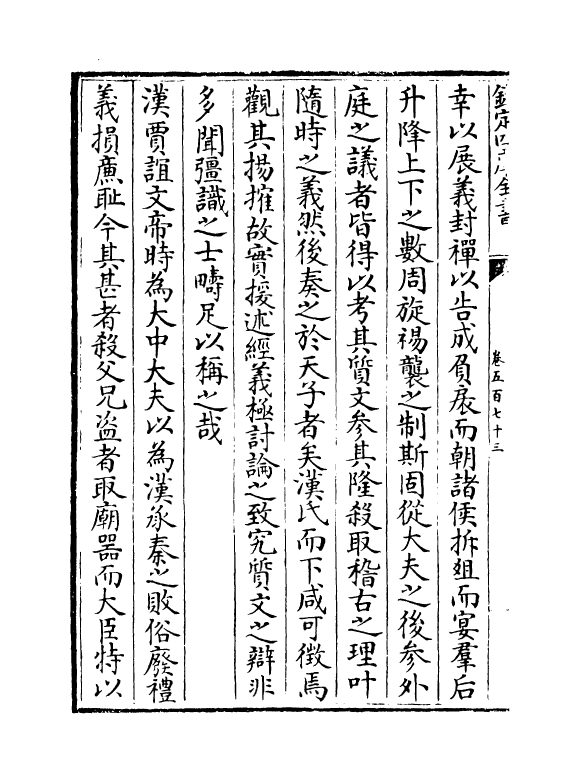 欽定四庫全書
卷五百七十三
幸以展義封禪以告成負扆而朝諸侯拆俎而宴羣后
升降上下之數周旋裼襲之制斯固從大夫之後參外
庭之議者皆得以考其質文參其隆殺取稽古之理叶
隨時之義然後奏之於天子者矣漢氏而下咸可徵焉
觀其揚搉故實援述經義極討論之致究質文之辯非
多聞彊識之士疇足以稱之哉
漢賈誼文帝時為大中大夫以為漢承秦之敗俗廢禮
義損廉耻今其甚者殺父兄盜者取廟器而大臣特以